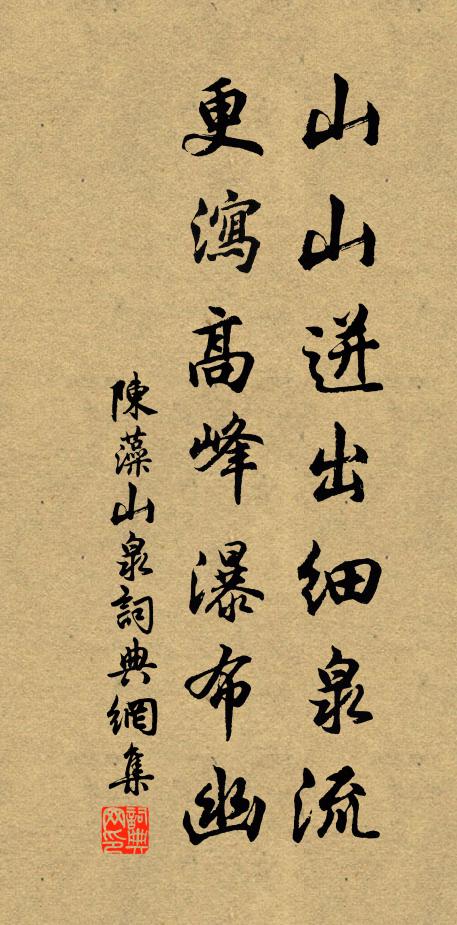 山山迸出細泉流
更瀉高峰瀑布幽
陳藻山泉詞典網集
詞典網印